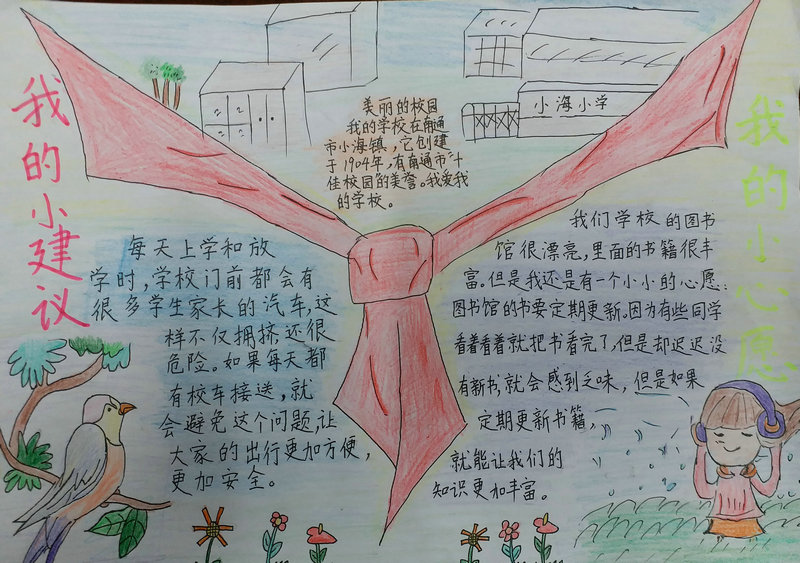 我的小建议
美丽的校园
我的学校在南通
市小海镇，它创建
于1904年，有南通市“十
佳校园”的美誉。我爱我
的学校。
小海小学
每天上学和放
学时，学校门前都会有
很多学生家长的汽车，这
样不仅拥挤，还很
危险。如果每天都
有校车接送，就
会避免这个问题，让
大家的出行更加方便，
更加安全。
我的小心愿
我们学校的图书
馆很漂亮，里面的书籍很丰
富。但是我还是有一个小小的心愿：
图书馆的书要定期更新。因为有些同学
看着看着就把书看完了，但是却迟迟没
有新书，就会感到乏味，但是如果
定期更新书籍，
就能让我们的
知识更加丰富。